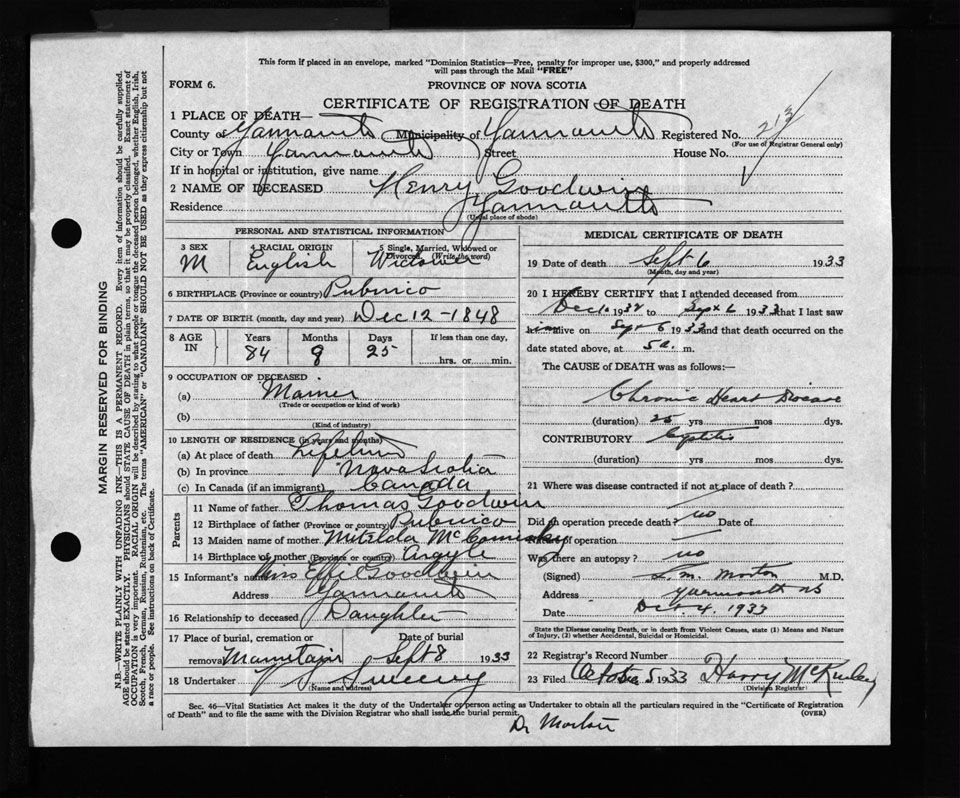 This form if placed in an envelope, marked "Dominion Statistics—Free, penalty for improper use, $300," and properly addressed
will pass through the Mail "FREE"
FORM 6. PROVINCE OF NOVA SCOTIA
CERTIFICATE OF REGISTRATION OF DEATH
1 PLACE OF DEATH—
County of Yarmouth Municipality of Yarmouth Registered No.
(For use of Registrar General only)
City or Town Yarmouth Street House No.
If in hospital or institution, give name
2 NAME OF DECEASED Henry Goodwin
Residence Yarmouth
(Usual place of abode)
PERSONAL AND STATISTICAL INFORMATION
3 SEX 4 RACIAL ORIGIN 5 Single, Married, Widowed or
Divorced (Write the word)
M English Widower
6 BIRTHPLACE (Province or country) Pubnico
7 DATE OF BIRTH (month, day and year) Dec 12 - 1848
8 AGE IN Years Months Days If less than one day,
84 8 25 hrs. or min.
9 OCCUPATION OF DECEASED
(a) Mariner
(Trade or occupation or kind of work)
(b)
(Kind of industry)
10 LENGTH OF RESIDENCE (in years and months)
(a) At place of death Lifetime
(b) In province Nova Scotia
(c) In Canada (if an immigrant) Canada
Parents
11 Name of father Thomas Goodwin
12 Birthplace of father (Province or country) Pubnico
13 Maiden name of mother Mitelda McComisky
14 Birthplace of mother (Province or country) Argyle
15 Informant's name Miss Effie Goodwin
Address Yarmouth
16 Relationship to deceased Daughter
17 Place of burial, cremation or Date of burial
removal Mountain Sept 8 1933
18 Undertaker V S Sweeny
(Name and address)
MEDICAL CERTIFICATE OF DEATH
19 Date of death Sept 6 1933
(Month, day and year)
20 I HEREBY CERTIFY that I attended deceased from
1932 to Sept 6 1933 that I last saw
him alive on Sept 6 1933 and that death occurred on the
date stated above, at 5 a. m.
The CAUSE OF DEATH was as follows:—
Chronic Heart Disease
(duration) 25 yrs mos dys.
CONTRIBUTORY Cystitis
(duration) yrs mos dys.
21 Where was disease contracted if not at place of death?
Did an operation precede death? no Date of
Nature of operation
Was there an autopsy? no
(Signed) L. M. Morton M.D.
Address Yarmouth NS
Date Oct 4. 1933
State the Disease causing Death, or in death from Violent Causes, state (1) Means and Nature
of Injury, (2) whether Accidental, Suicidal or Homicidal.
22 Registrar's Record Number
23 Filed October 5 1933 Harry McKinley
(Division Registrar)
Sec. 46—Vital Statistics Act makes it the duty of the Undertaker or person acting as Undertaker to obtain all the particulars required in the "Certificate of Registration
of Death" and to file the same with the Division Registrar who shall issue the burial permit. (OVER)
Dr Morton
MARGIN RESERVED FOR BINDING
N.B.—WRITE PLAINLY WITH UNFADING INK—THIS IS A PERMANENT RECORD. Every item of information should be carefully supplied.
AGE should be stated EXACTLY. PHYSICIANS should STATE CAUSE OF DEATH in plain terms, so that it may be properly classified. Exact statement of
OCCUPATION is very important. RACIAL ORIGIN will be described by stating to what people or tongue the deceased person belonged, whether English, Irish,
Scotch, French, German, Russian, Ruthenian, etc. The terms "AMERICAN" or "CANADIAN" SHOULD NOT BE USED as they express citizenship but not
a race or people. See instructions on back of Certificate.